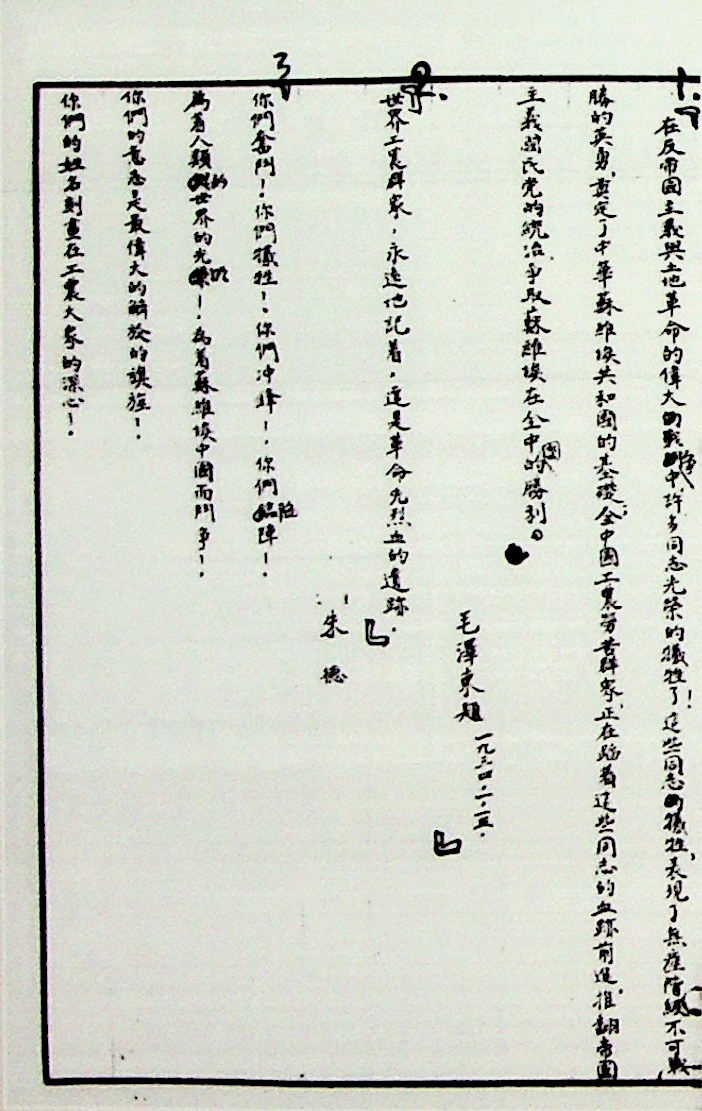 在反帝國主義與土地革命的偉大的戰爭中,許多同志光榮的犧牲了!這些同志的犧牲,表現了無產階級不可戰
勝的英勇,奠定了中華蘇維埃共和國的基礎,全中國工農勞苦群眾,正在踏着這些同志的血跡前進,推翻帝國
主義國民党的統治,爭取蘇維埃在全中國的勝利。
毛澤東題
一九三四·一·五·
世界工農群眾,永遠地記着,這是革命先烈血的遺跡.
朱德
你們奮鬥!你們犧牲!你們冲鋒!你們臨陣!
為着人類與世界的光榮!為着蘇維埃中國而鬥爭!
你們的意志是最偉大的解放的旗旌!
你們的姓名刻畫在工農大眾的深心!